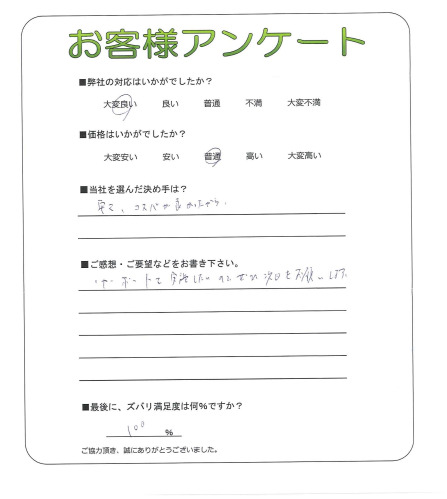 お客様アンケート
■弊社の対応はいかがでしたか？
大変良い 良い 普通 不満 大変不満
■価格はいかがでしたか？
大変安い 安い 普通 高い 大変高い
■当社を選んだ決め手は？
コスパが良かったから。
■ご感想・ご要望などをお書き下さい。
お願いします
■最後に、ズバリ満足度は何%ですか？
100 %
ご協力頂き、誠にありがとうございました。